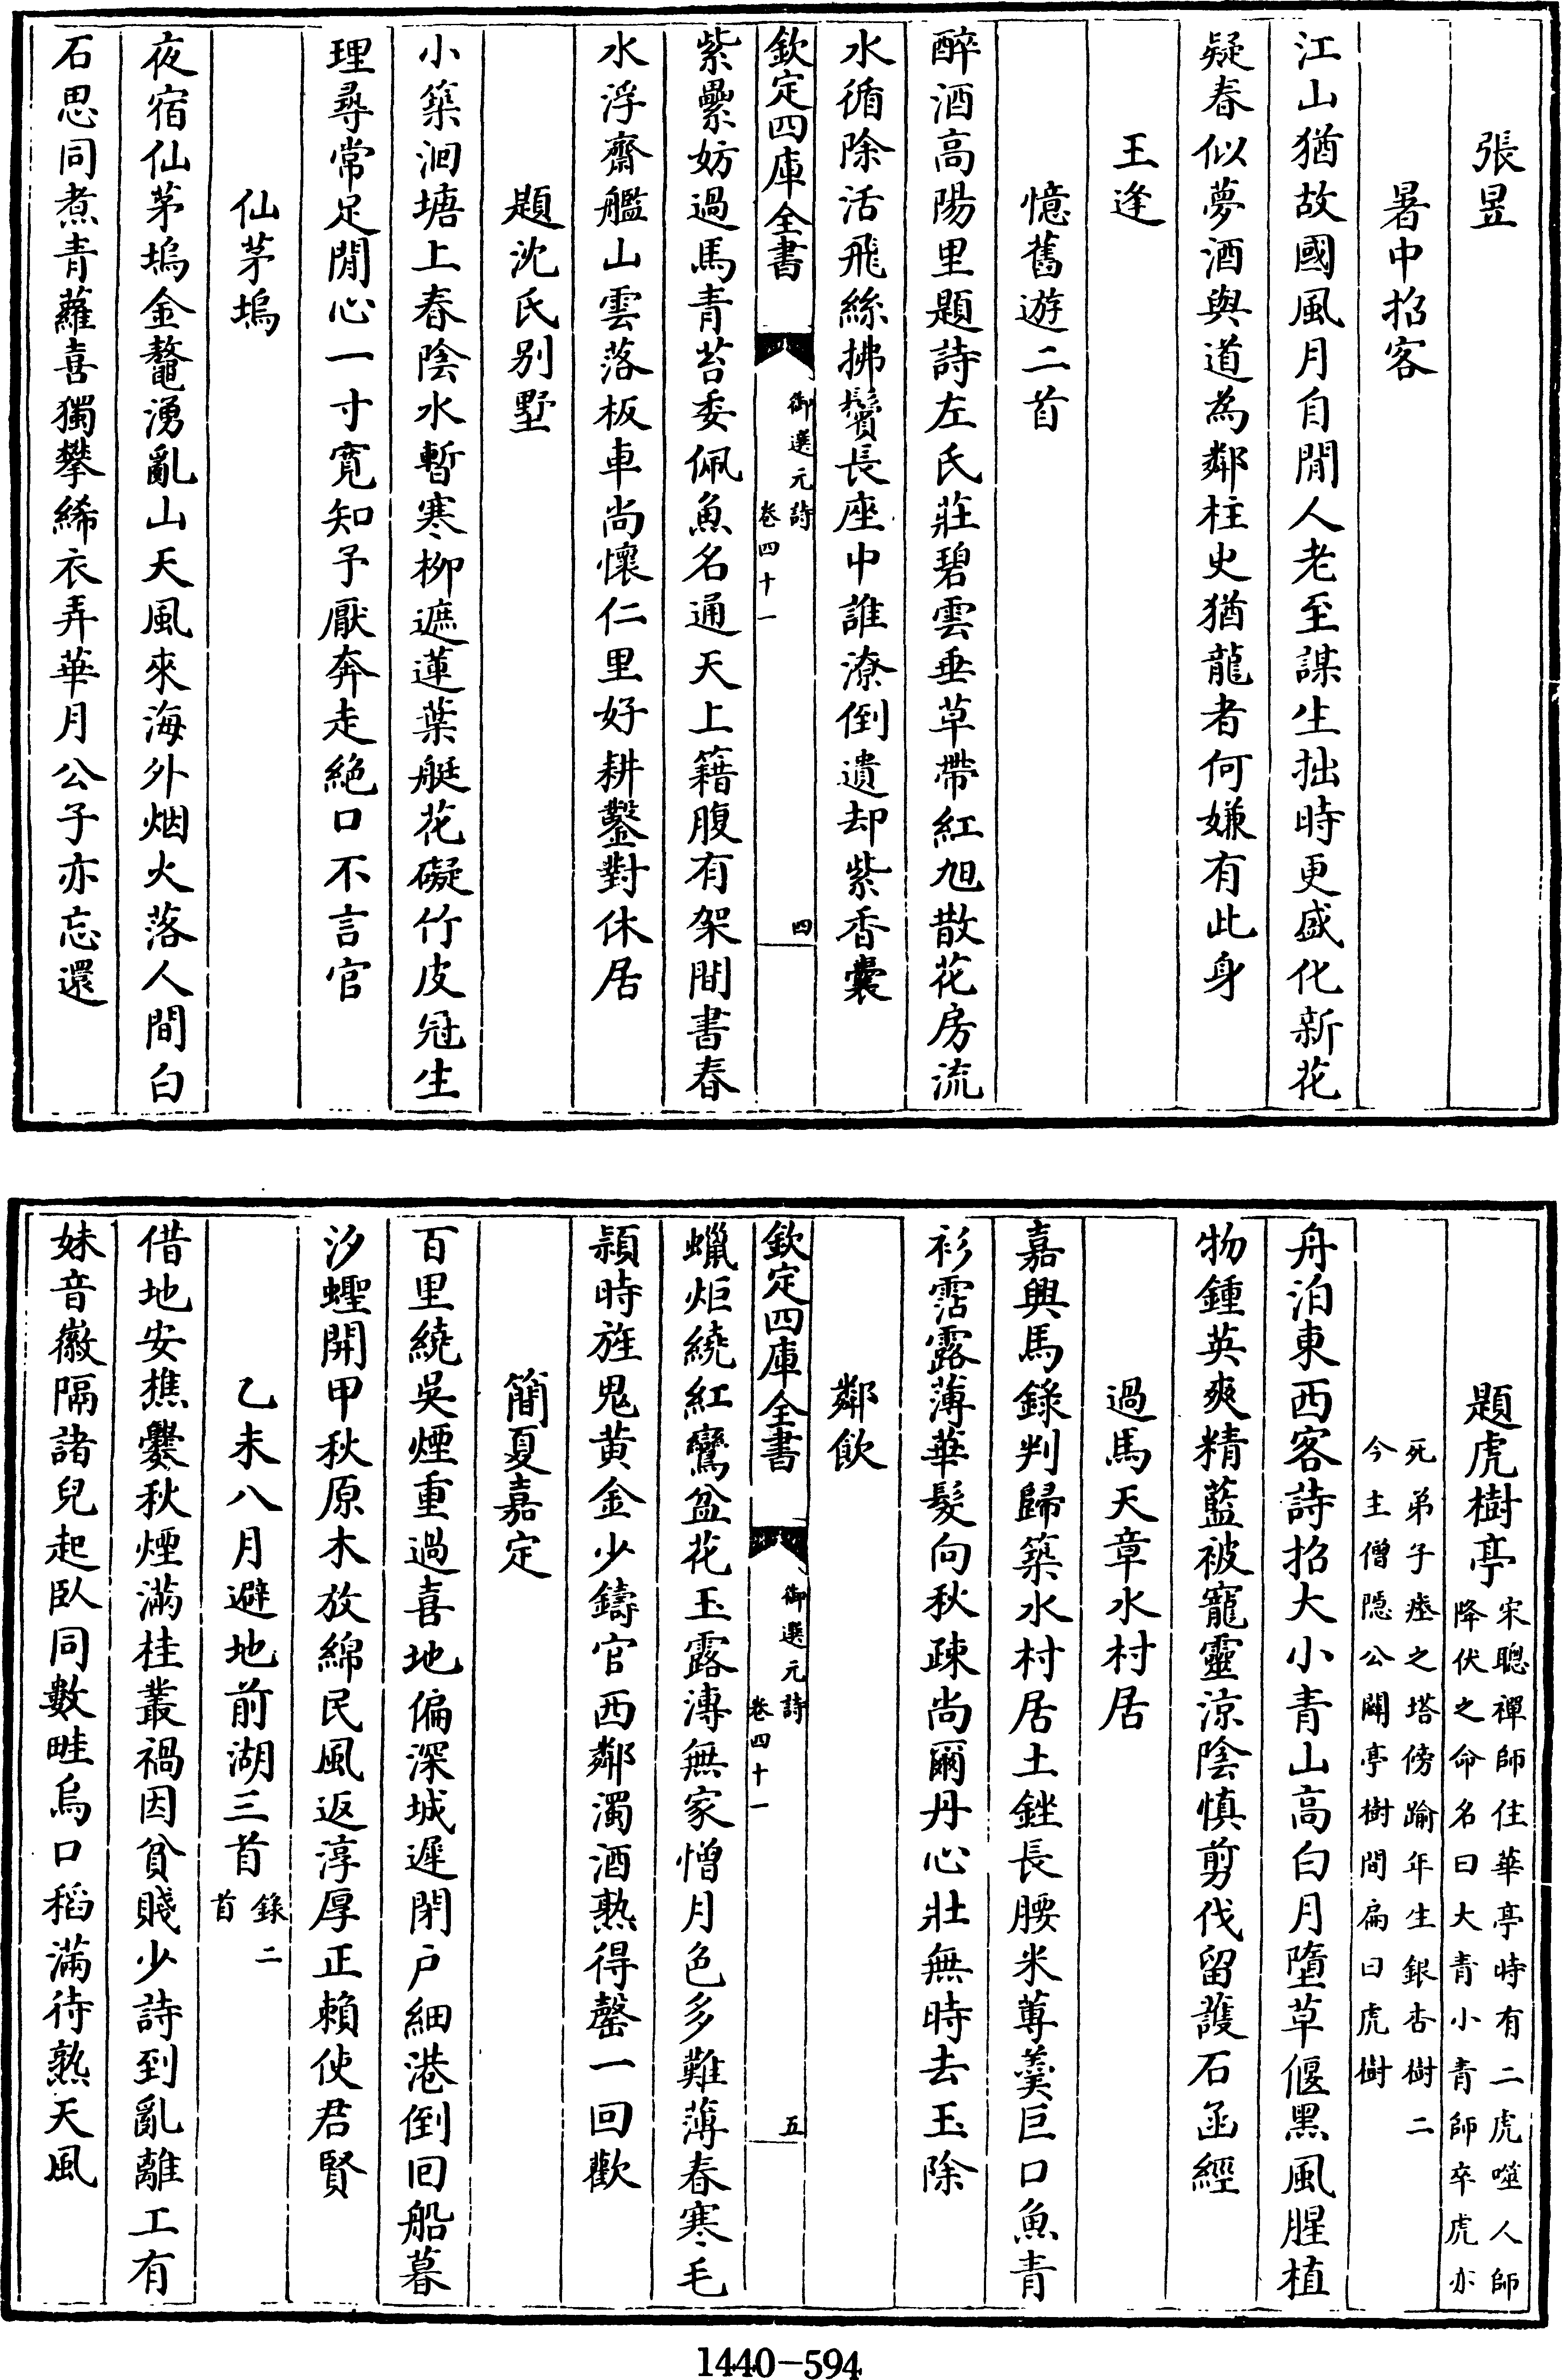 張昱
暑中招客
江山猶故國風月自閒人老至謀生拙時更盛化新花
疑春似夢酒與道為鄰柱史猶龍者何嫌有此身
王逢
憶舊遊二首
醉酒高陽里題詩左氏莊碧雲垂草帶紅旭散花房流
水循除活飛絲拂鬢長座中誰潦倒遺却紫香囊
欽定四庫全書
御選元詩
卷四十一
四
紫纍妨過馬青苔委佩魚名通天上籍腹有架間書春
水浮齋艦山雲落板車尚懷仁里好耕鑿對休居
題沈氏别墅
小築洄塘上春陰水暫寒柳遮蓮葉艇花礙竹皮冠生
理尋常足閒心一寸寬知予厭奔走絶口不言官
仙茅塢
夜宿仙茅塢金鼇湧亂山天風來海外烟火落人間白
石思同煮青蘿喜獨攀絺衣弄華月公子亦忘還
題虎樹亭
宋聰禪師住華亭時有二虎噬人師
降伏之命名曰大青小青師卒虎亦
死弟子瘞之塔傍踰年生銀杏樹二
今主僧隠公闢亭樹間扁曰虎樹
舟泊東西客詩招大小青山高白月墮草偃黑風腥植
物鍾英爽精藍被寵靈涼陰慎剪伐留護石函經
過馬天章水村居
嘉興馬錄判歸築水村居土銼長腰米蓴羮巨口魚青
衫霑露薄華髪向秋疎尚爾丹心壯無時去玉除
鄰飲
欽定四庫全書
御選元詩
卷四十一
五
蠟炬繞紅鸞盆花玉露漙無家憎月色多難薄春寒毛
穎時旌鬼黄金少鑄官西鄰濁酒熟得罄一回歡
簡夏嘉定
百里繞吳煙重過喜地偏深城遲閉户細港倒囘船暮
汐蟶開甲秋原木放綿民風返淳厚正賴使君賢
乙未八月避地前湖三首
錄二
首
借地安樵爨秋煙滿桂叢禍因貧賤少詩到亂離工有
妹音徽隔諸兒起臥同數畦烏口稻滿待熟天風
1440-594